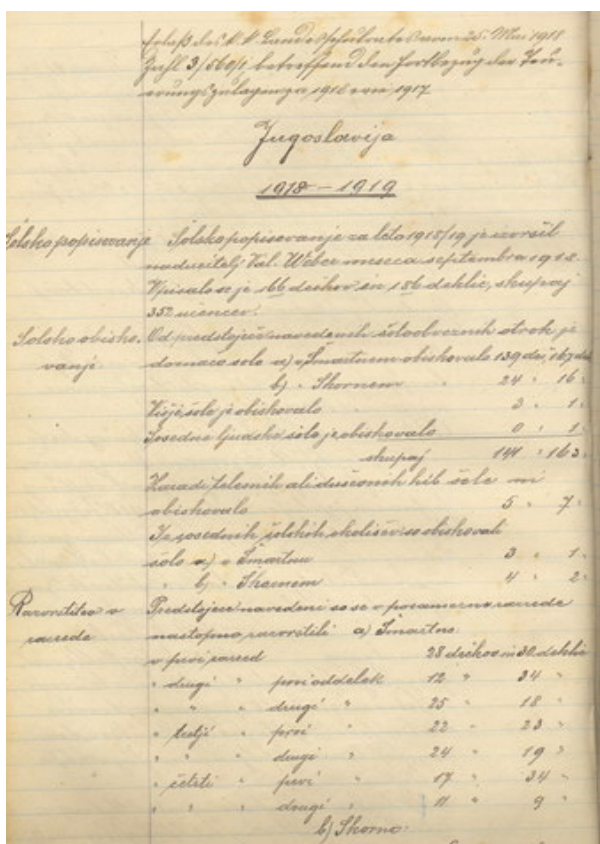 Erlaß des k. k. Landesschulrates vom 25. Mai 1918
Zahl 3/560/1 betreffend den Fortbezug der Teu-
erungszulagen pza 1916 von 1917
Jugoslavija
1918 – 1919
Šolsko popisovanje
Šolsko popisovanje za leto 1918/19 je izvršil
nadučitelj Val. Weber meseca septembra 1918.
Vpisalo se je 166 dečkov in 186 deklic, skupaj
352 učencev.
Šolsko obisko-
vanje
Od predstoječe navedenih šoloobveznih otrok je
domačo šolo a) v Šmartnem obiskovalo 139 deč. 167 dek
b) " Skornem " 24 " 16 "
Višjo šolo je obiskovalo 3 " 1 "
Sosedno ljudsko šolo je obiskovalo 0 " 1 "
skupaj 163 "
Zaradi telesnih ali duševnih hib šole ni
obiskovalo 5 " 7 "
Iz sosednih šolskih okolišev so obiskovali
šolo a) v Šmartnu 3 " 1 "
" b) " Skornem 4 " 2 "
Razvrstitev v
razrede
Predstoječe navedeni so se v posamezne razrede
nastopno razvrstili a) Šmartno:
v prvi razred 28 dečkov in 30 deklic
" drugi " prvi oddelek 12 " 34 "
" " " drugi " 25 " 18 "
" tretji " prvi " 22 " 23 "
" " " drugi " 24 " 19 "
" četrti " prvi " 17 " 34 "
" " " drugi " 11 " 9 "
b) Skorno: